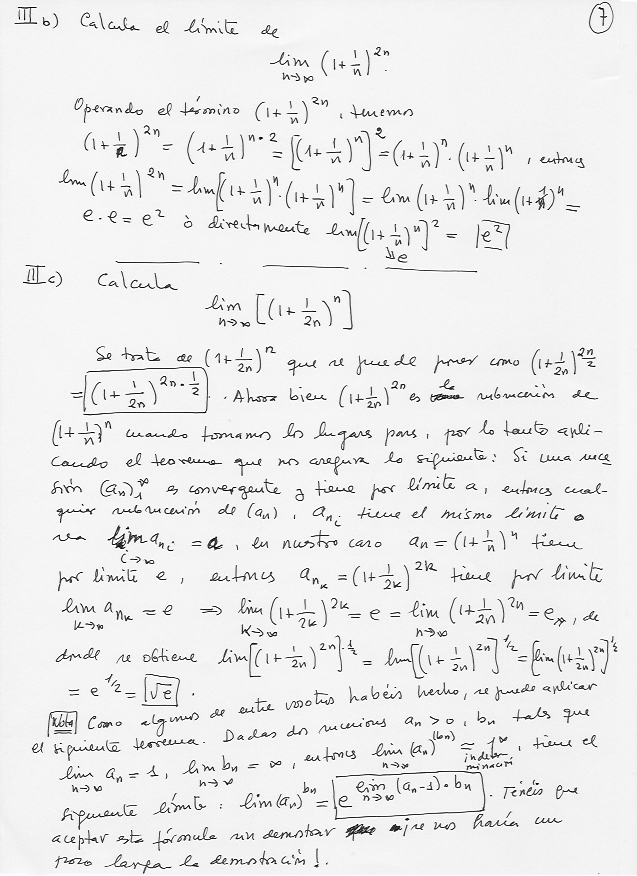 III b) Calcula el límite de ⑦
lim n→∞ (1+1/n)^2n.
Operando el término (1+1/n)^2n, tenemos
(1+1/n)^2n = (1+1/n)^n·2 = [(1+1/n)^n]^2 = (1+1/n)^n · (1+1/n)^n, entonces
lim (1+1/n)^2n = lim[(1+1/n)^n · (1+1/n)^n] = lim (1+1/n)^n · lim (1+1/n)^n =
e·e = e^2 ò directamente lim[(1+1/n)^n]^2 = e^2
⇓e
III c) Calcula
lim n→∞ [(1+1/2n)^n]
Se trata de (1+1/2n)^n que se puede poner como (1+1/2n)^2n/2
= (1+1/2n)^2n·1/2. Ahora bien (1+1/2n)^2n es la subsucesión de
(1+1/n)^n cuando tomamos los lugares pares, por lo tanto apli-
cando el teorema que nos asegura lo siguiente: Si una suce
sión (an)1^∞ es convergente y tiene por límite a, entonces cual-
quier subsucesión de (an), ani tiene el mismo límite o
sea lim i→∞ ani = a, en nuestro caso an = (1+1/n)^n tiene
por límite e, entonces ank = (1+1/2k)^2k tiene por límite
lim k→∞ ank = e ⇒ lim k→∞ (1+1/2k)^2k = e = lim n→∞ (1+1/2n)^2n = e, de
donde se obtiene lim[(1+1/2n)^2n]·1/2 = lim[(1+1/2n)^2n]^1/2 = [lim(1+1/2n)^2n]^1/2
= e^1/2 = √e.
Nota Como algunos de entre vosotros habéis hecho, se puede aplicar
el siguiente teorema. Dadas dos sucesiones an > 0, bn tales que
lim n→∞ an = 1, lim n→∞ bn = ∞, entonces lim n→∞ (an)^(bn) = 1^∞, tiene el
indeter
minació
siguiente límite: lim(an)^bn = e^lim n→∞ (an-1)·bn. Tenéis que
aceptar esta fórmula sin demostrar ¡se nos haría un
pozo larga la demostración!.